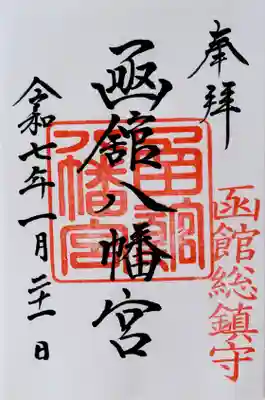 奉拝
函館総鎮守
函館八幡宮
凾舘八幡宮
令和七年一月二十一日